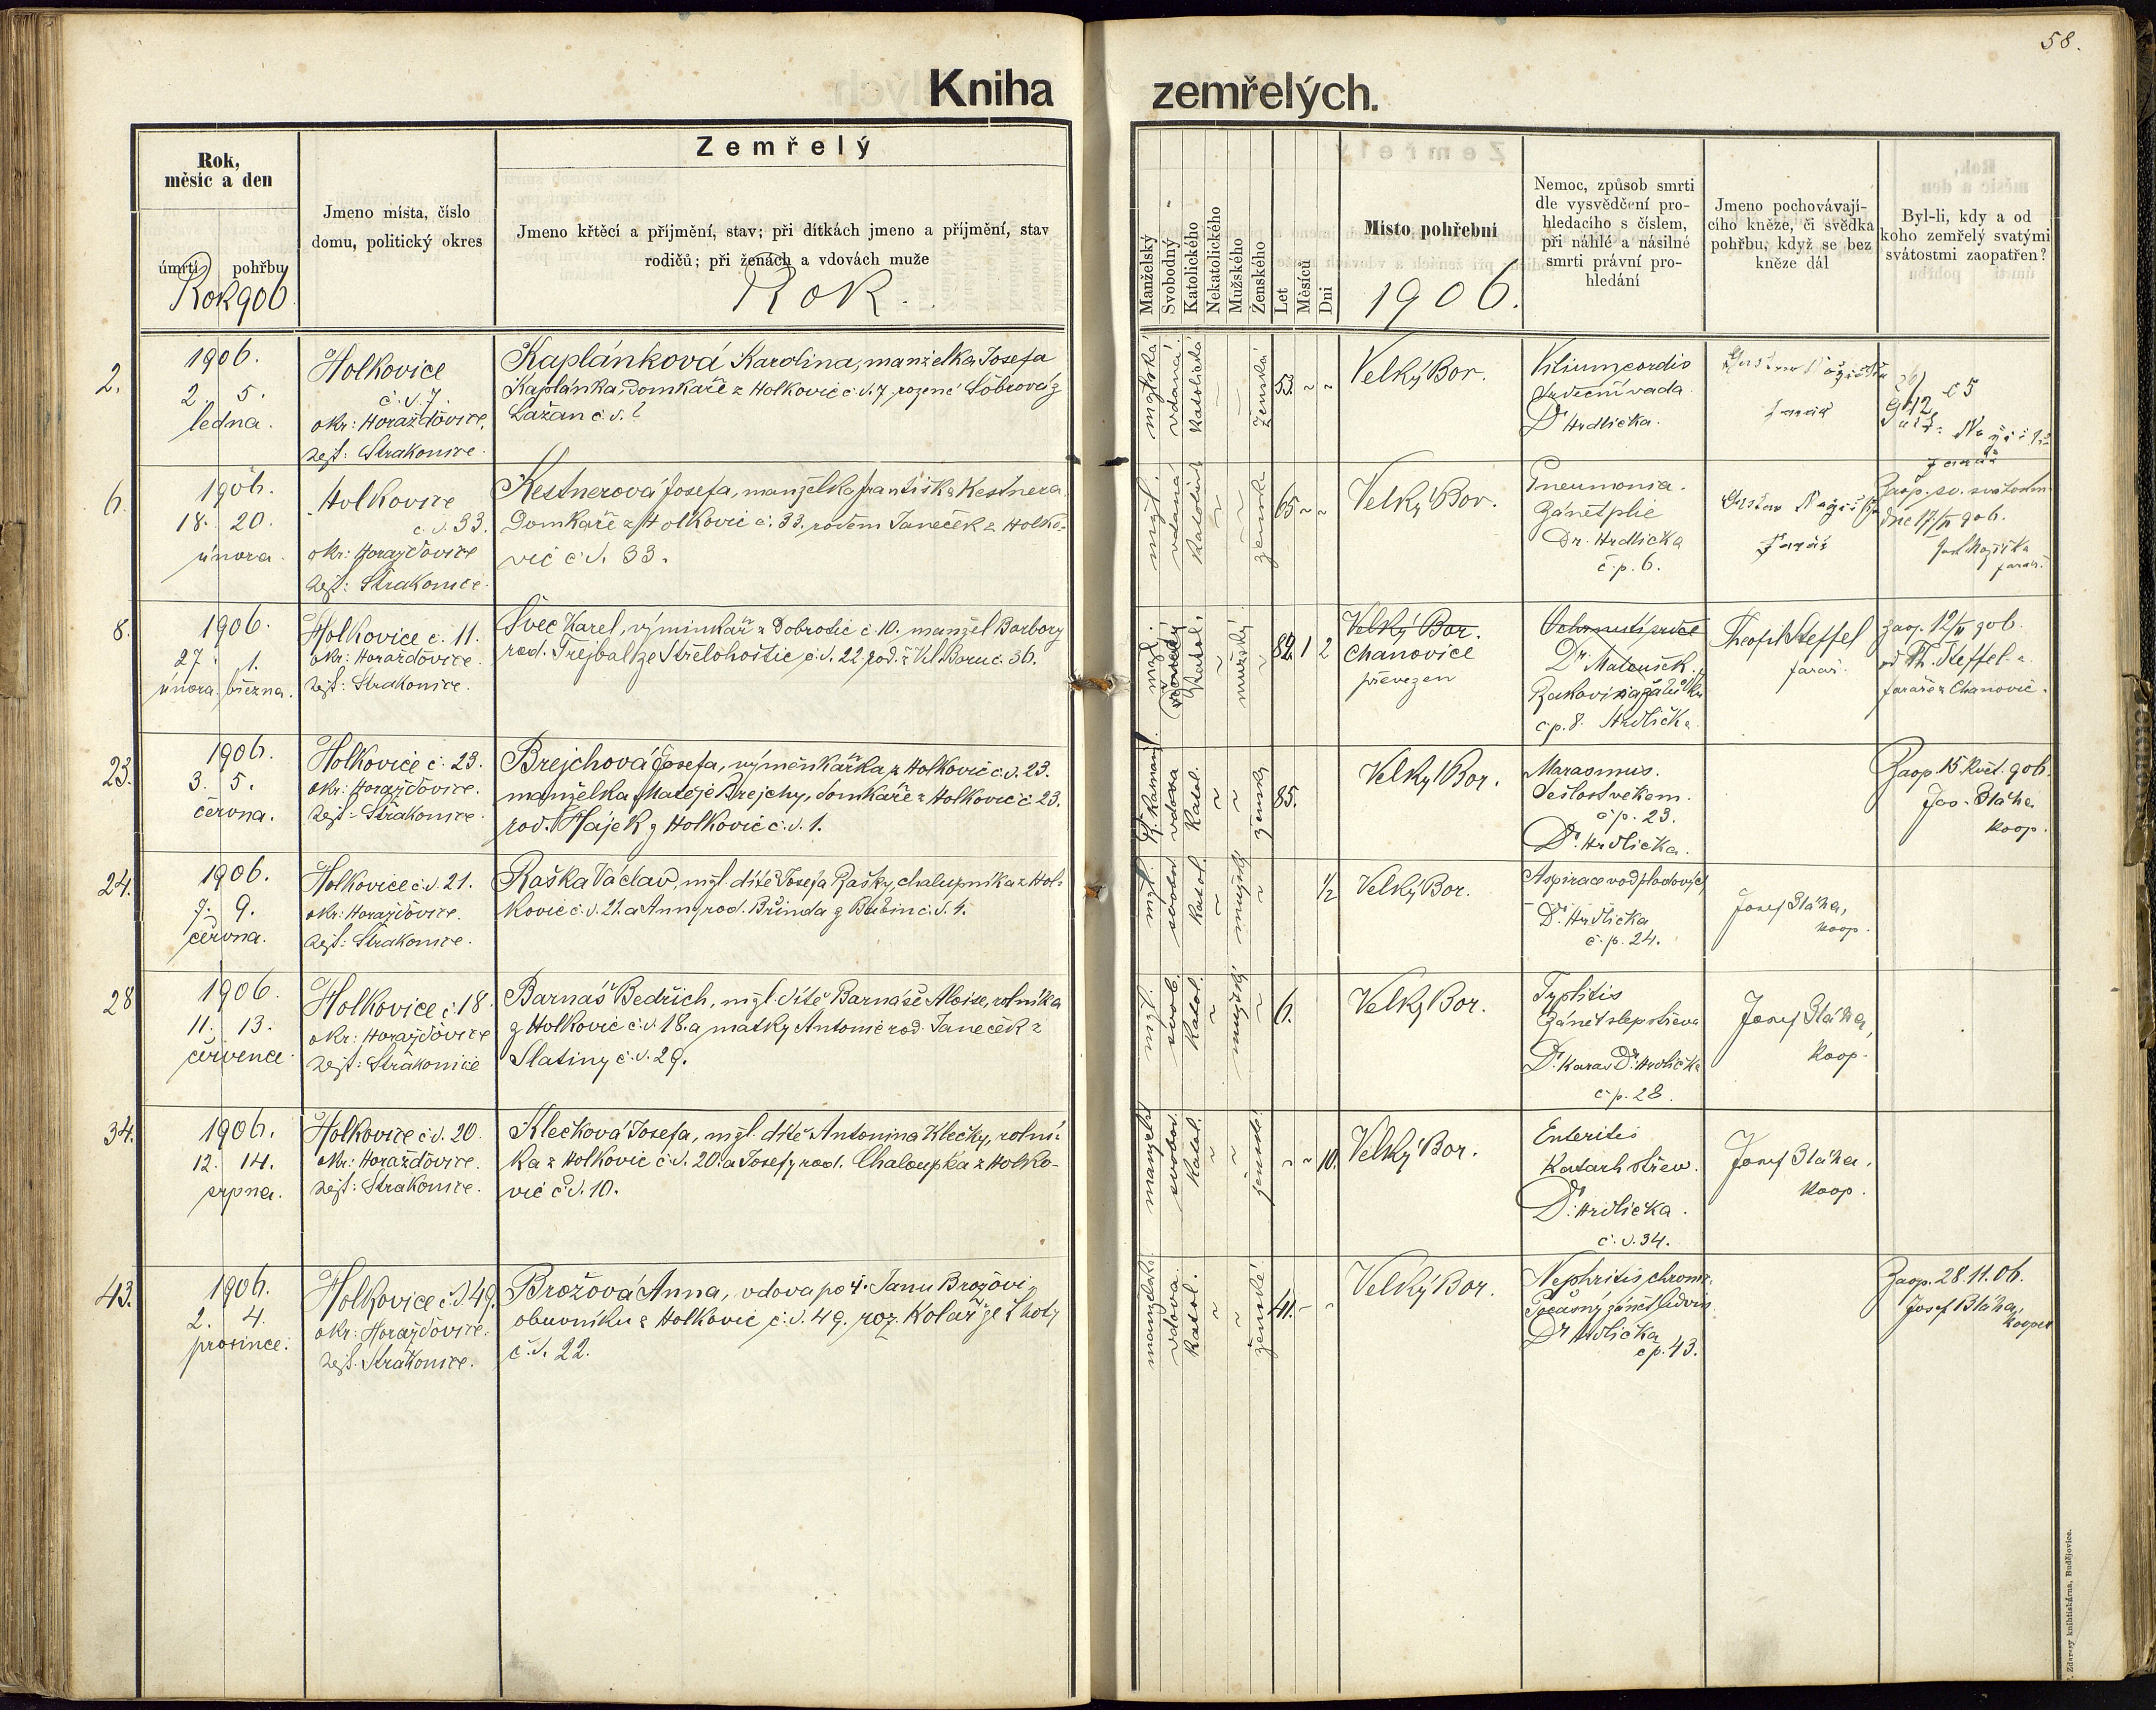 58.
Kniha zemřelých.
Rok,
měsíc a den
úmrtí pohřbu
Rok 906
Jmeno místa, číslo
domu, politický okres
Zemřelý
Jmeno křtěcí a příjmění, stav; při dítkách jmeno a příjmění, stav
rodičů; při ženách a vdovách muže
Rok
Manželský
Svobodný
Katolického
Nekatolického
Mužského
Ženského
Let
Měsíců
Dní
Místo pohřební
1906.
Nemoc, způsob smrti
dle vysvědčení pro-
hledacího s číslem,
při náhlé a násilné
smrti právní pro-
hledání
Jmeno pochovávají-
cího kněze, či svědka
pohřbu, když se bez
kněze dál
Byl-li, kdy a od
koho zemřelý svatými
svátostmi zaopatřen?
2.
1906.
2. 5.
ledna.
Holkovice
č.d. 7.
okr: Horažďovice,
hejt: Strakonice.
Kaplánková Karolina, manželka Josefa
Kaplánka, domkaře z Holkovic č.d. 7. rozené
Lažan č.d. ?
vdaná
katolická
ženská
Velký Bor.
Vitium cordis
Srdeční vada
Dr Hrdlička.
farář
6.
1906.
18. 20.
února.
Holkovice
č.d. 33.
okr: Horažďovice
hejt: Strakonice.
Kestnerová Josefa, manželka Františka Kestnera
domkaře z Holkovic č. 33. rodem Janeček z Holko-
vic č.d. 33.
manžel.
vdaná
ženská
65 ~ ~
Velký Bor.
Pneumonia.
Zánět plic
Dr. Hrdlička
č.p. 6.
farář
Zaop. sv. svátostm.
dne 17/II 906.
farář.
8.
1906.
27. 1.
února. března.
Holkovice č. 11.
okr: Horažďovice.
hejt: Strakonice.
Švec Karel, výminkář z Dobrotic č 10. manžel Barbory
rod. Trejbal ze Střelohoštic č.d. 22. rod. z Vel. Boru č. 36.
Katol.
mužský
82. 1 2
Velký Bor.
Chanovice
převezen
Ochrnutí srdce
Dr. Matoušek.
Rakovina žaludku
č.p. 8. Hrdlička.
Theofil Steffel
farář.
zaop. 12/II 906.
od Th. Steffela
faráře z Chanovic.
23.
1906.
3. 5.
června.
Holkovice č. 23.
okr: Horažďovice.
hejt: Strakonice.
Brejchová Josefa, výměnkářka z Holkovic č.d. 23.
manželka Matěje Brejchy, domkaře z Holkovic č. 23.
rod. Hájek z Holkovic č.d. 1.
vdova
Katol.
ženský
85.
Velký Bor.
Marasmus.
Sešlost věkem.
č.p. 23.
Dr. Hrdlička.
Zaop. 15. květ. 906.
Jos. Bláha
koop.
24.
1906.
7. 9.
června.
Holkovice č.d. 21.
okr: Horažďovice.
hejt: Strakonice.
Raška Václav, mžl. dítě Josefa Rašky, chalupníka z Hol-
kovic č.d. 21. a Anny rod. Břinda z Bušin č.d. 4.
mžl.
svobod.
Katol.
mužský
1/2
Velký Bor.
Aspirace vod plodových
Dr. Hrdlička
č.p. 24.
Josef Bláha,
koop.
28
1906.
11. 13.
července.
Holkovice č. 18.
okr: Horažďovice
hejt: Strakonice
Barnáš Bedřich, mžl. dítě Barnáše Aloise, rolníka
z Holkovic č.d. 18. a matky Antonie rod. Janeček z
Slatiny č.d. 29.
svob.
Katol.
mužský
6.
Velký Bor.
Typlitis
Zánět slep. střeva
Dr. Karas Dr. Hrdlička
č.p. 28.
Josef Bláha,
koop.
34.
1906.
12. 14.
srpna.
Holkovice č.d. 20.
okr: Horažďovice.
hejt: Strakonice.
Klečková Josefa, mžl. dítě Antonína Klečky, rolní-
ka z Holkovic č.d. 20. a Josefy rod. Chaloupka z Holko-
vic č.d. 10.
manžel.
svobod.
Katol.
ženské
~ ~ 10.
Velký Bor.
Enteritis
Katarh střev.
Dr. Hrdlička.
č.d. 34.
Josef Bláha,
koop.
43.
1906.
2. 4.
prosince.
Holkovice č.d. 49.
okr: Horažďovice.
hejt. Strakonice.
Brožová Anna, vdova po † Janu Brožovi,
obuvníku z Holkovic č.d. 49. roz. Kolář ze Lhoty
č.d. 22.
manželské
vdova.
Katol.
ženské
41. ~ ~
Velký Bor.
Nephritis chronic.
Dr Hrdlička
č.p. 43.
Zaop. 28. 11. 06.
Josef Bláha,
kooper.
Zdarssy knihtiskárna, Budějovice.